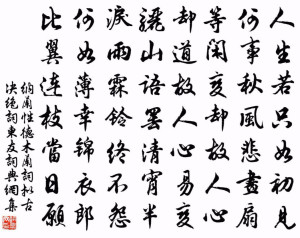 人生若只如初見
何事秋風悲畫扇
等閑變却故人心
却道故人心易變
驪山語罷清宵半
淚雨霖鈴終不怨
何如薄幸錦衣郎
比翼連枝當日願
納蘭性德木蘭詞拟古
决絕詞柬友詞典網集